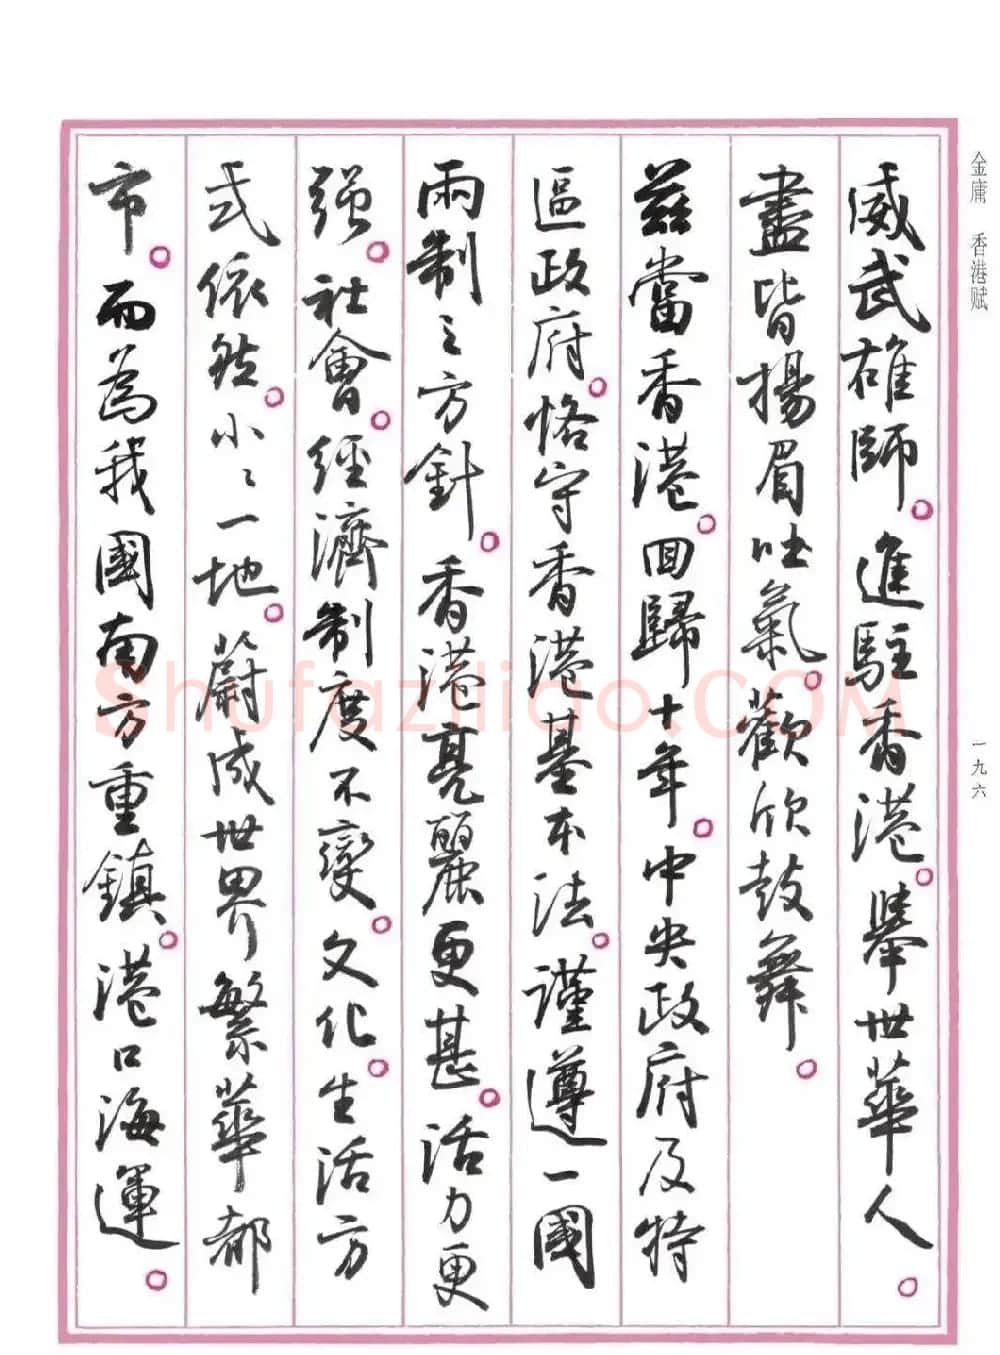 金庸 香港赋
一九六
威武雄師。進駐香港。舉世華人。
盡皆揚眉吐氣。歡欣鼓舞。
茲當香港。回歸十年。中央政府及特
區政府。恪守香港基本法。謹遵一國
兩制之方針。香港亮麗更甚。活力更
强。社會。經濟制度不變。文化。生活方
式依然。小〻一地。蔚成世界繁華都
市。而為我國南方重鎮。港口海運。
Shufaziliao.COM